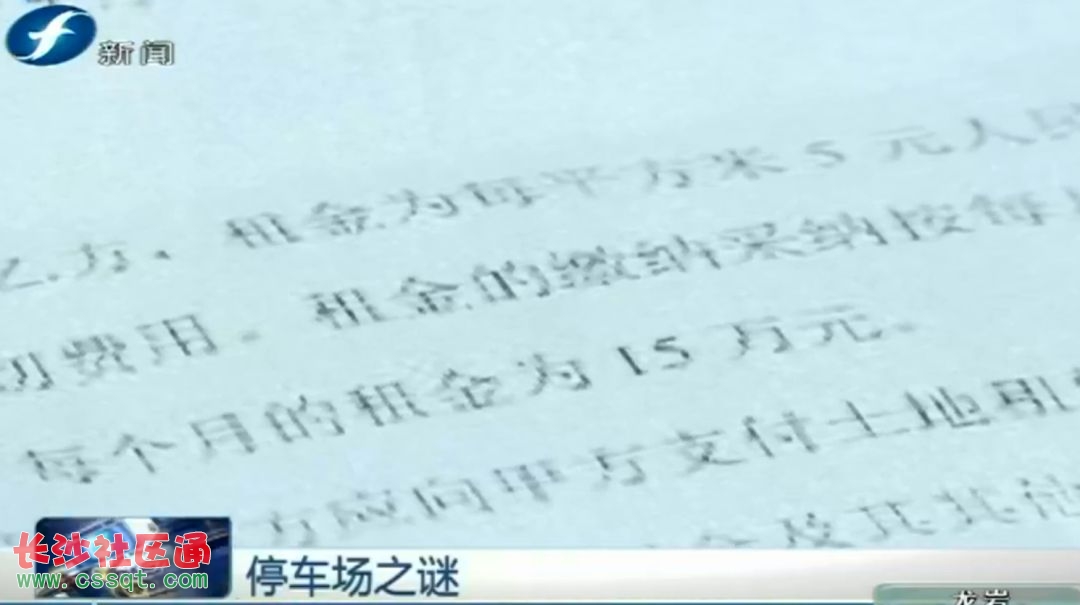 新闻
乙方，租金为每平方米5元人民
切费用。租金的缴纳采纳按每
每个月的租金为15万元。
方应向甲方支付土地引
及其其他
长沙社区通
www.cssqt.com
停车场之谜
龙岩